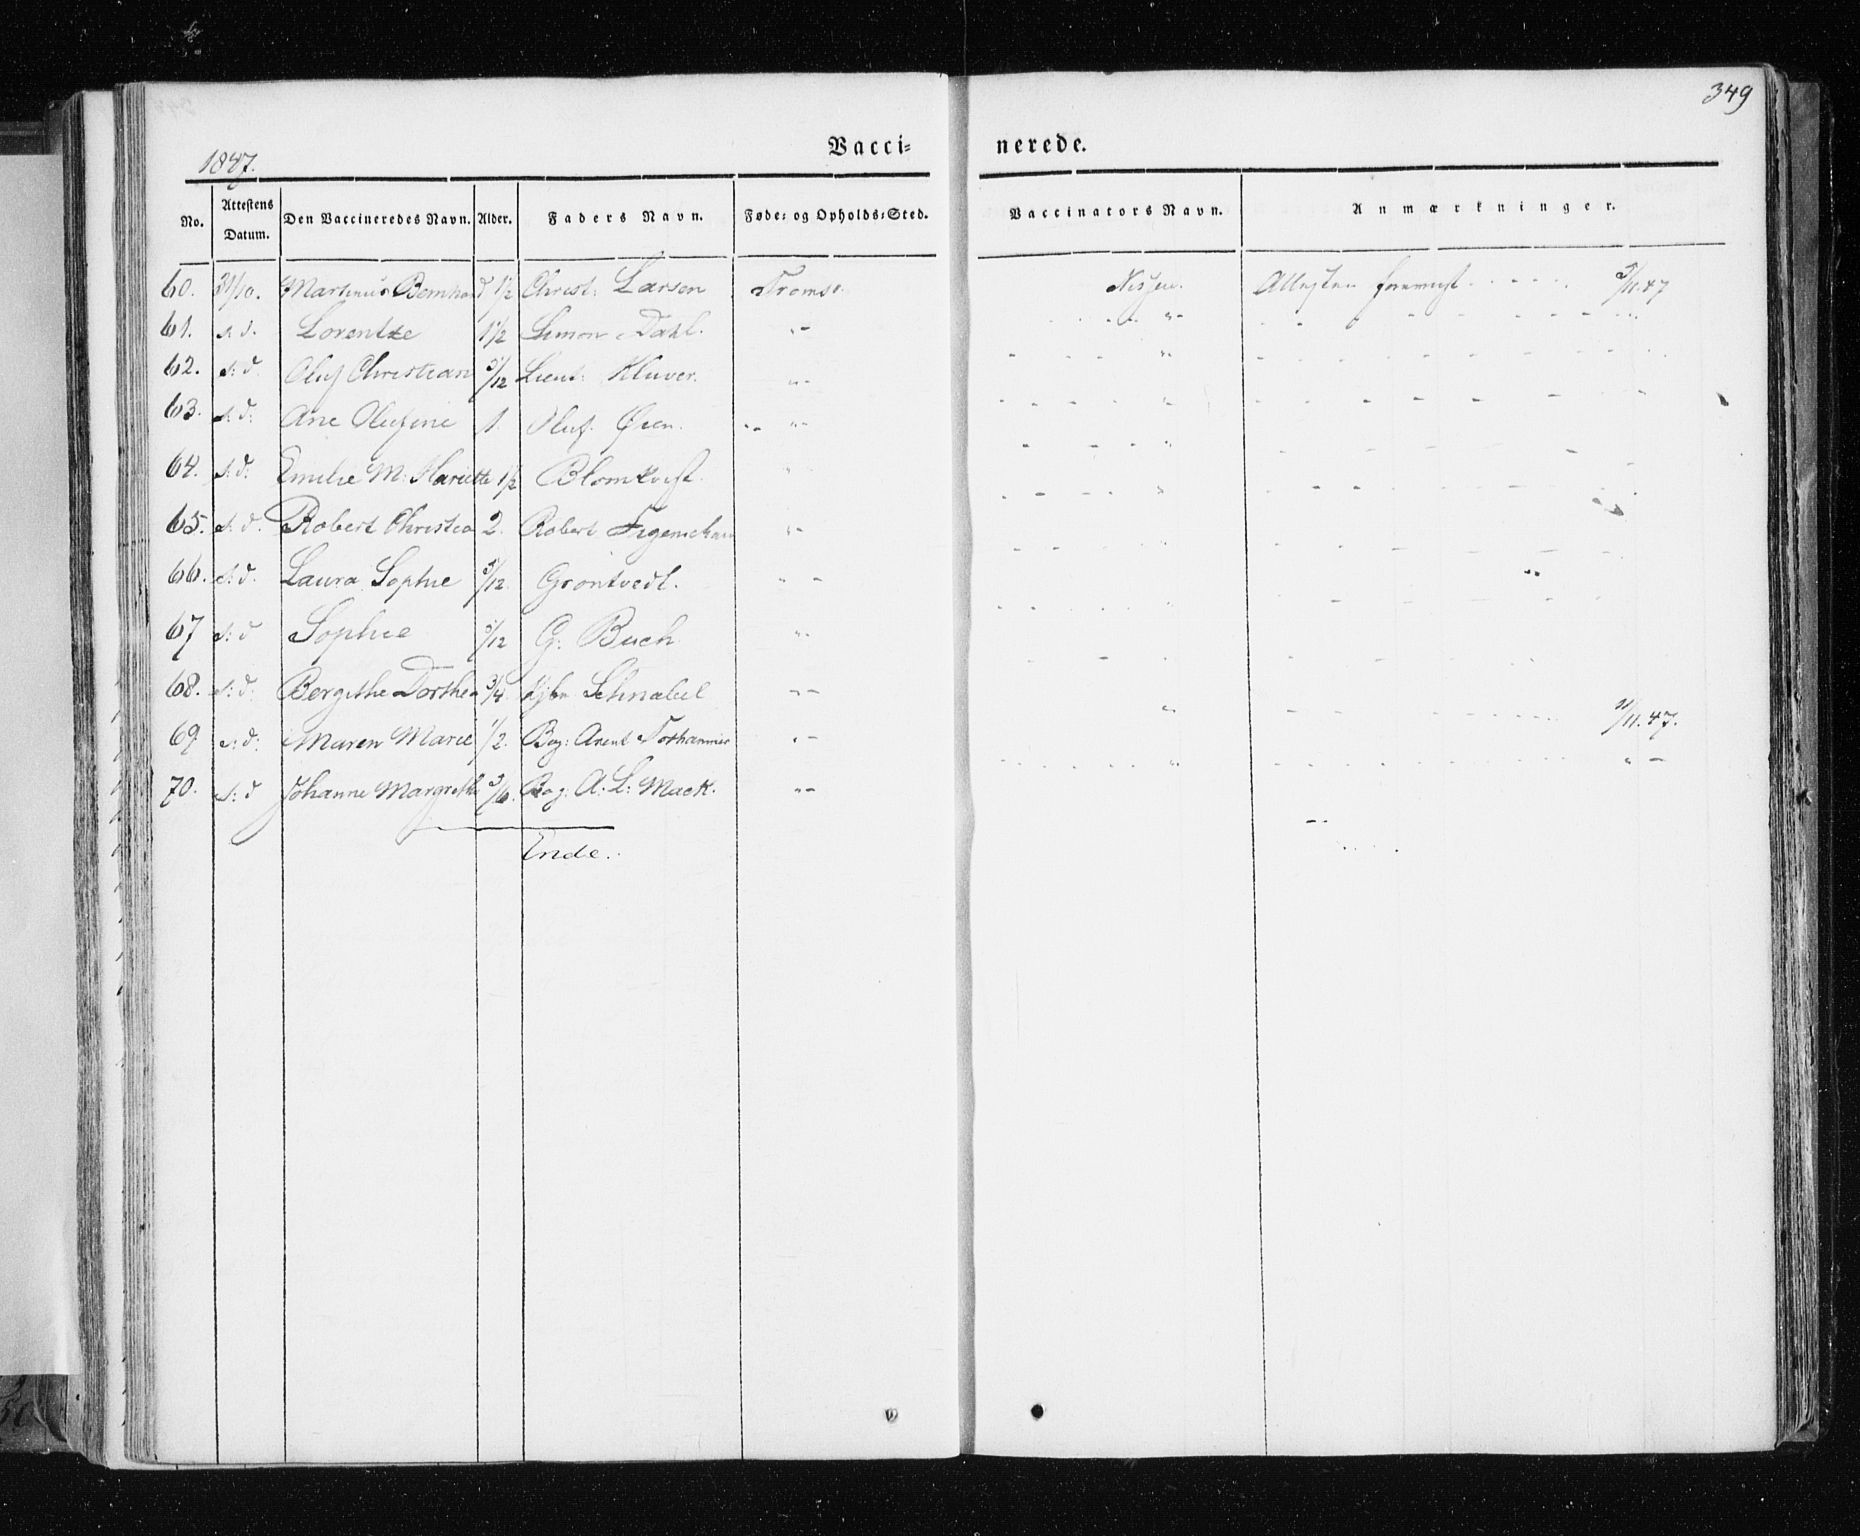 349
1847.
Vacci= nerede.
No. Attestens Datum. Den Vaccineredes Navn. Alder. Faders Navn. Føde= og Opholds=Sted. Vaccinators Navn. Anmærkninger.
60. 31/10. Martinus Bernhard 1½ Christ: Larsen Tromsø. Attesten 5/11.47
61. s. d. Lorentze 1½ Simon Dahl. "-
62. s: d. Oluf Christian 5/12 Lieut: Kluver. "-
63. s. d: Ane Olufine 1. Oluf Øien. "-
64. s. d: Emilie M: Hariette 1½ Blomkvist. "
65. s. d. Robert Christia 2. Robert Figenschau "-
66. s: d. Laura Sophie 5/12. Grøntvedt. " -
67 s: d Sophie /12 G: Buch "-
68. s: d: Bergithe Dorthea 3/4. Schnabel "-
69 s: d: Maren Marie 1/2. Bag: Arent "- /11.47.
70. s: d Johanne Margrethe Bag: A: L: Mack. "- " -
Ende.